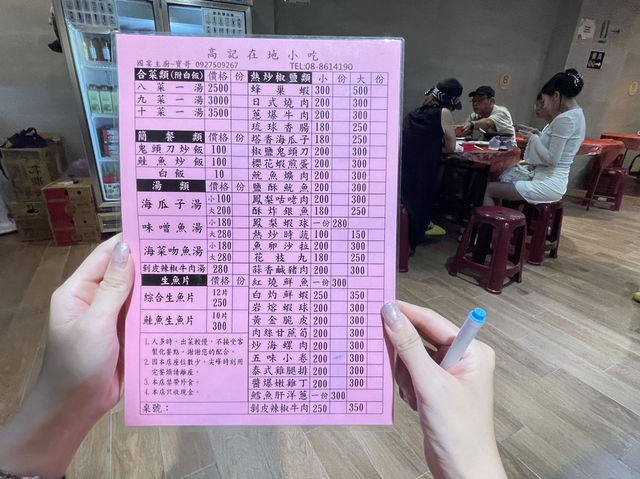 高記在地小吃
國宴主廚~寶哥 0927509267 TEL:08-8614190
合菜類(附白飯) 價格 份
八菜一湯 2500
九菜一湯 3000
十菜一湯 3500
簡餐類 價格 份
鬼頭刀炒飯 100
鮭魚炒飯 100
白飯 10
湯類 價格 份
海瓜子湯 小100 大200
味噌魚湯 小180 大280
海菜吻魚湯 小180 大280
剝皮辣椒牛肉湯 280
生魚片 價格 份
綜合生魚片 12片 250
鮭魚生魚片 10片 300
1.人多時，出菜較慢，不接受客
製化餐點，謝謝您的配合。
2.因本店座位數少，尖峰時刻用
完餐煩請離座。
3.本店禁帶外食。
4.本店只收現金。
桌號：
熱炒椒鹽類 小 份 大 份
蜂巢蝦 300 500
日式燒肉 200 300
蔥爆牛肉 200 300
琉球香腸 180 250
塔香海瓜子 180 250
椒鹽鬼頭刀 200 300
櫻花蝦煎蛋 200 300
魷魚爌肉 200 300
鹽酥魷魚 200 300
鳳梨咕咾肉 200 300
酥炸銀魚 180 250
鳳梨蝦球 一份280
熱炒時蔬 100 150
魚卵沙拉 200 300
花枝丸 180 250
蒜香鹹豬肉 200 300
紅燒鮮魚 一份300
白灼鮮蝦 250 350
岩熔蝦球 200 300
黃金脆皮 200 300
肉絲甘蔗筍 200 300
炒海螺肉 200 300
五味小卷 200 300
泰式雞腿排 200 300
醬爆嫩雞丁 200 300
鱈魚肝洋蔥 一份300
剝皮辣椒牛肉 250 350
8